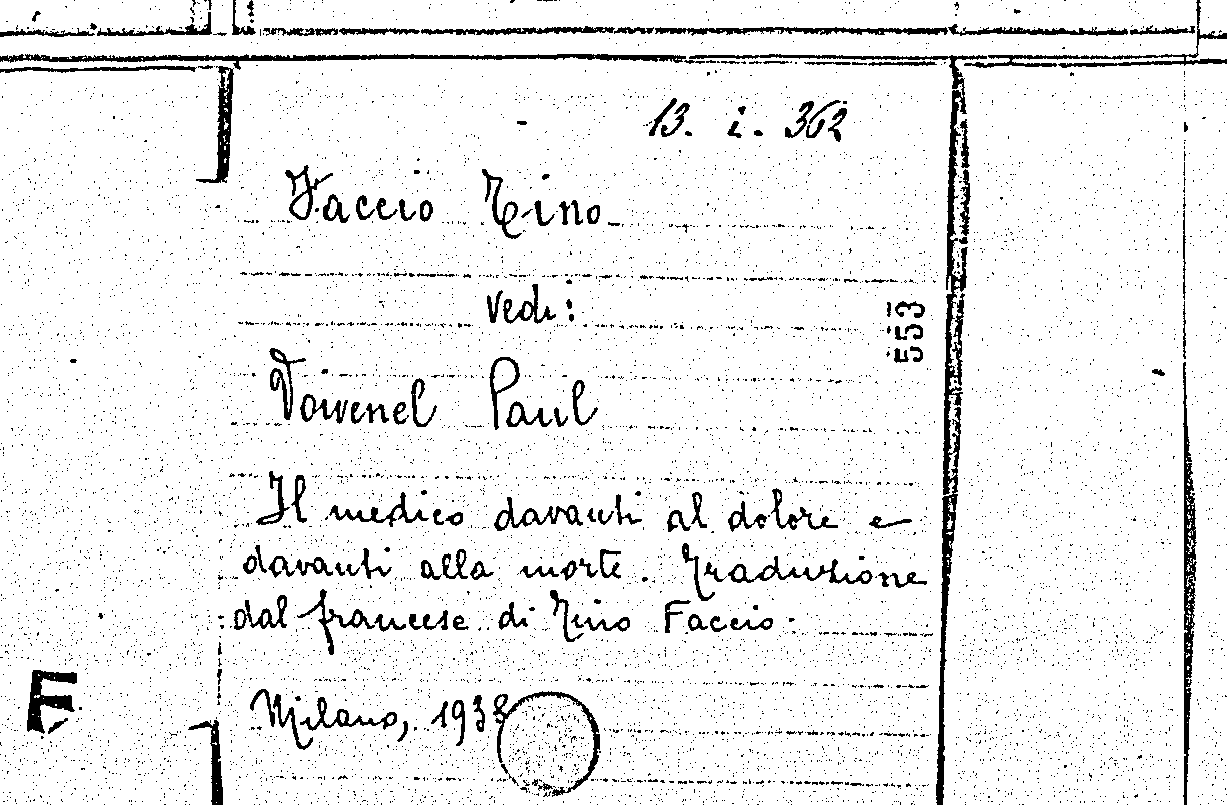 13. i. 362
Faccio Tino
vedi:
553
Voivenel Paul
Il medico davanti al dolore e
davanti alla morte. Traduzione
dal francese di Tino Faccio.
F
Milano, 1938